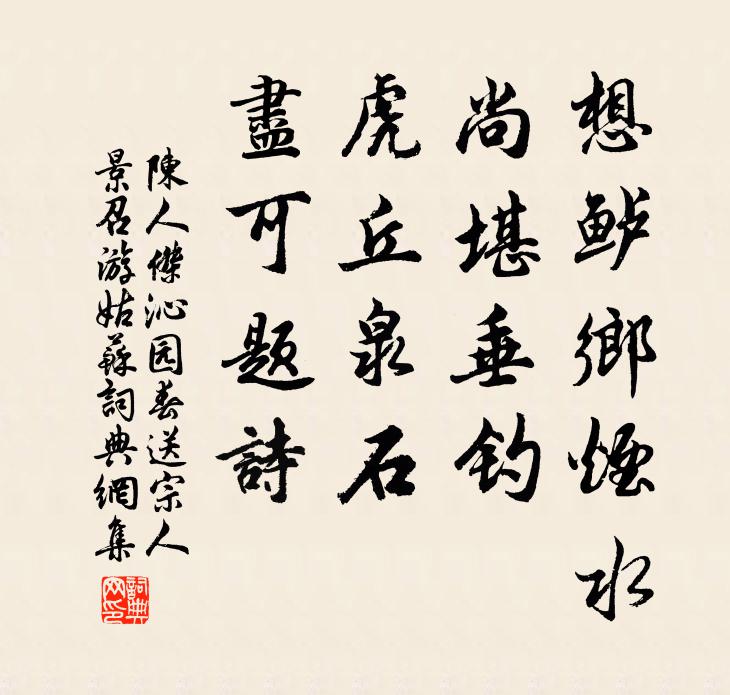 想鲈鄉煙水
尚堪垂钓
虎丘泉石
盡可题詩
陳人傑沁园春送宗人
景召游姑蘇詞典網集
詞典网印